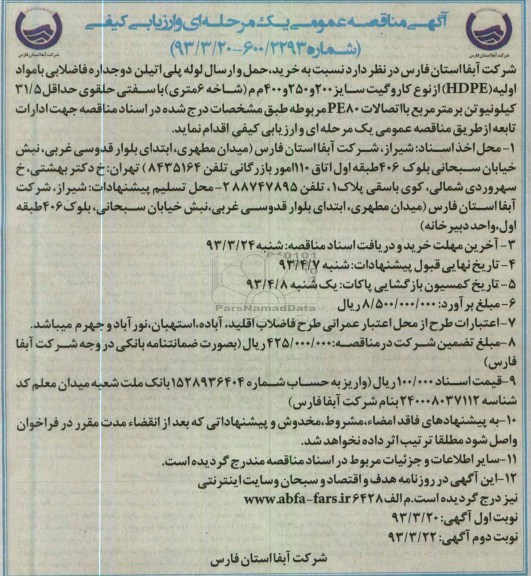 آگهی مناقصه عمومی یک مرحله‌ای و ارزیابی کیفی
(شماره ۶۰۰/۲۲۹۳-۹۳/۳/۲۰)
شرکت آبفا استان فارس
شرکت آبفا استان فارس
شرکت آبفا استان فارس در نظر دارد نسبت به خرید، حمل و ارسال لوله پلی اتیلن دوجداره فاضلابی با مواد
اولیه (HDPE) از نوع کاروگیت سایز ۲۰۰ و ۲۵۰ و ۴۰۰ م م (شاخه ۶ متری) با سفتی حلقوی حداقل ۳۱/۵
کیلونیوتن بر متر مربع با اتصالات PE۸۰ مربوطه طبق مشخصات درج شده در اسناد مناقصه جهت ادارات
تابعه از طریق مناقصه عمومی یک مرحله ای و ارزیابی کیفی اقدام نماید.
۱- محل اخذ اسناد: شیراز، شرکت آبفا استان فارس (میدان مطهری، ابتدای بلوار قدوسی غربی، نبش
خیابان سبحانی بلوک ۴۰۶ طبقه اول اتاق ۱۱۰ امور بازرگانی تلفن ۸۴۳۵۱۶۴) تهران: خ دکتر بهشتی، خ
سهروردی شمالی، کوی باسقی پلاک ۱، تلفن ۸۸۷۴۷۸۹۵ ۲- محل تسلیم پیشنهادات: شیراز، شرکت
آبفا استان فارس (میدان مطهری، ابتدای بلوار قدوسی غربی، نبش خیابان سبحانی، بلوک ۴۰۶ طبقه
اول، واحد دبیرخانه)
۳- آخرین مهلت خرید و دریافت اسناد مناقصه: شنبه ۹۳/۳/۲۴
۴- تاریخ نهایی قبول پیشنهادات: شنبه ۹۳/۴/۷
۵- تاریخ کمسیون بازگشایی پاکات: یک شنبه ۹۳/۴/۸
ParsNamadData
۶- مبلغ برآورد: ۸/۵۰۰/۰۰۰/۰۰۰ ریال
۷- اعتبارات طرح از محل اعتبار عمرانی طرح فاضلاب اقلید، آباده، استهبان، نورآباد و جهرم میباشد.
۸- مبلغ تضمین شرکت در مناقصه: ۴۲۵/۰۰۰/۰۰۰ ریال (بصورت ضمانتنامه بانکی در وجه شرکت آبفا
فارس)
۹- قیمت اسناد ۱۰۰/۰۰۰ ریال (واریز به حساب شماره ۱۵۲۸۹۳۶۴۰۴ بانک ملت شعبه میدان معلم کد
شناسه ۲۴۰۰۰۸۰۳۷۱۱۲ بنام شرکت آبفا فارس)
۱۰- به پیشنهادهای فاقد امضاء، مشروط، مخدوش و پیشنهاداتی که بعد از انقضاء مدت مقرر در فراخوان
واصل شود مطلقا ترتیب اثر داده نخواهد شد.
۱۱- سایر اطلاعات و جزئیات مربوط در اسناد مناقصه مندرج گردیده است.
۱۲- این آگهی در روزنامه هدف و اقتصاد و سبحان و سایت اینترنتی
نیز درج گردیده است. م الف ۶۴۲۸ www.abfa-fars.ir
نوبت اول آگهی: ۹۳/۳/۲۰
نوبت دوم آگهی: ۹۳/۳/۲۲
شرکت آبفا استان فارس